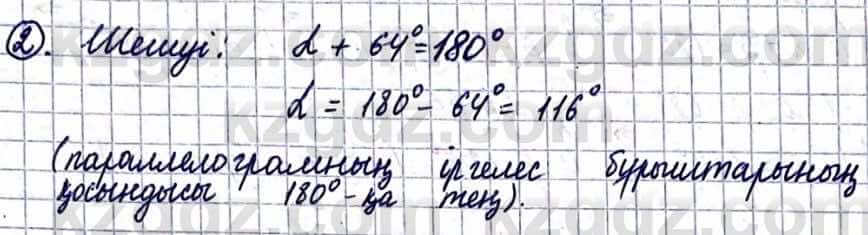 ②. Шешуі: α + 64° = 180°
α = 180° - 64° = 116°
(параллелограмның іргелес бұрыштарының
қосындысы 180° - қа тең).